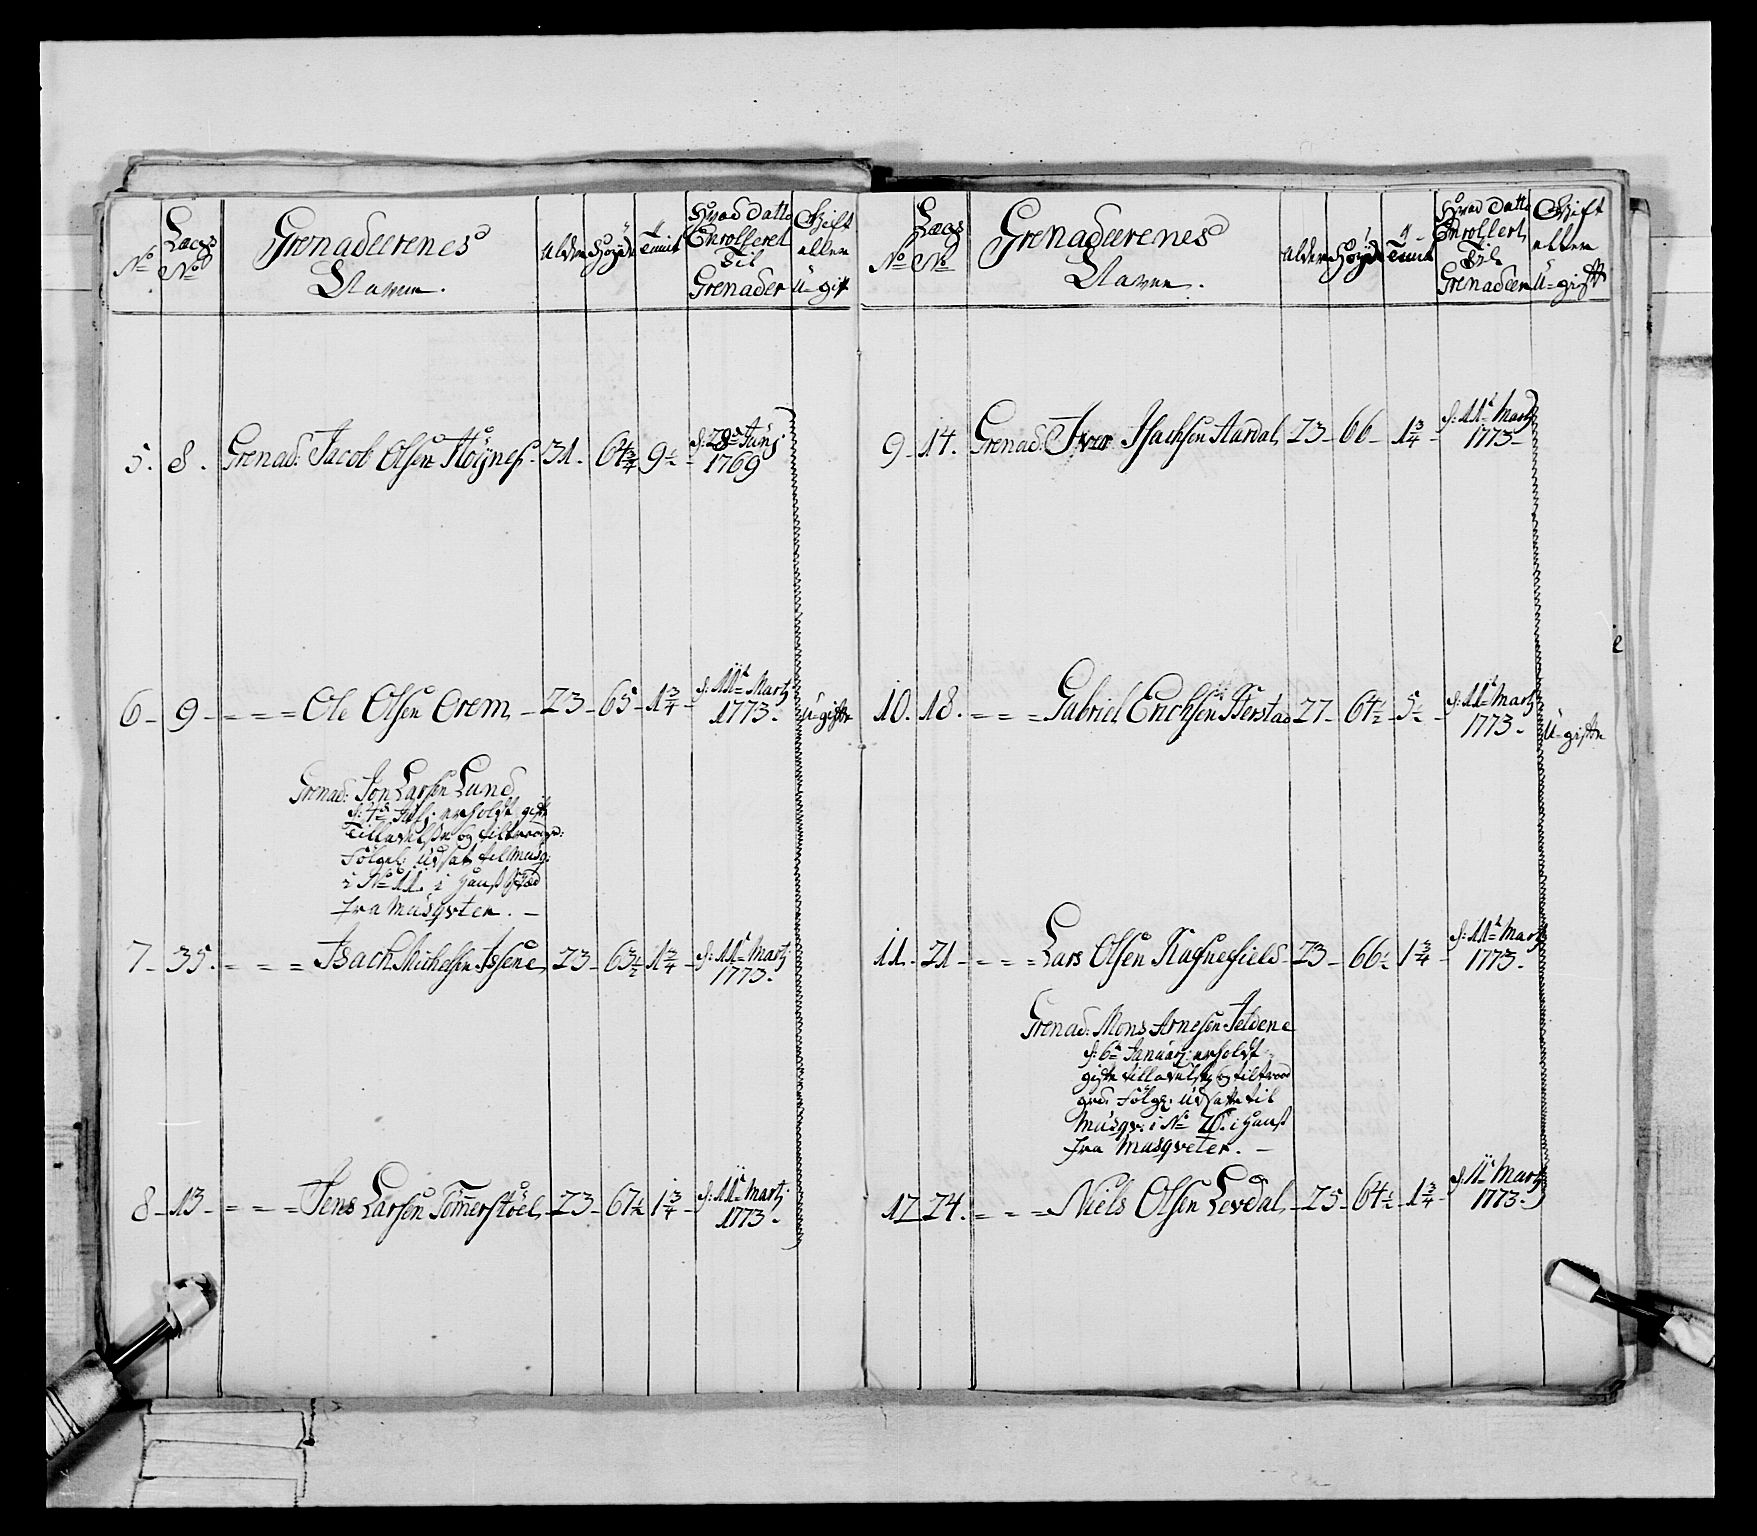 No
Laegs No
Grenadeerenes Navne.
Alder
Høyde
Tient
Hvad Datto Enrolleret til Grenader
Gift eller U-gift
5. 8. Grenad: Jacob Olsen Höynes - 31. 64 3/4 9 1/2 d: 28de Junj: 1769
6 - 9 - = = = Ole Olsen Orem - 23 - 65 - 1 3/4 - d: 11te Martj 1773. U-gifte
Grenad: Jon Larsen Lund
d: 4de Julj: erholdt gifte
Tilladelse og
Følgel: Udsat til Musq:
i No 11. i Hans Stæd
fra Musqveter. -
7 - 35. = = = Isach Michelsen Issene 23 - 63 1/2 1 3/4 - d: 11te Martj 1773.
8 - 13 - = = = Jens Larsen Tømmerstöel - 23 - 67 1/2 1 3/4 - d: 11te Martj: 1773.
No
Laegs No
Grenadeerenes Navne.
Alder
Høyde
Tient
Hvad Datto Enrollert til Grenadeer
Gift eller U-gift
9 - 14. Grenad: Iver Isachsen Aardal 23 - 66 - 1 3/4 - d: 11te Martj 1773 -
10. 18. = = = Gabriel Erichsen 27 - 64 1/2 - 5 1/2 - d: 11te Martj 1773. U-gifte
11. 21 - = = = Lars Olsen 23 - 66 1/2 1 3/4 - d: 11te Martj 1773.
Grenad: Mons Arnesen
d: 6te Januarj: erholdt
gifte tilladelse, og
Følgl: Udsatte til
Musqv: i No 20. i Hans
fra Musqveter. -
12 24. = = = Niels Olsen Levdal - 25 - 64 1/2 - 1 3/4 - d: 11te Martj 1773.